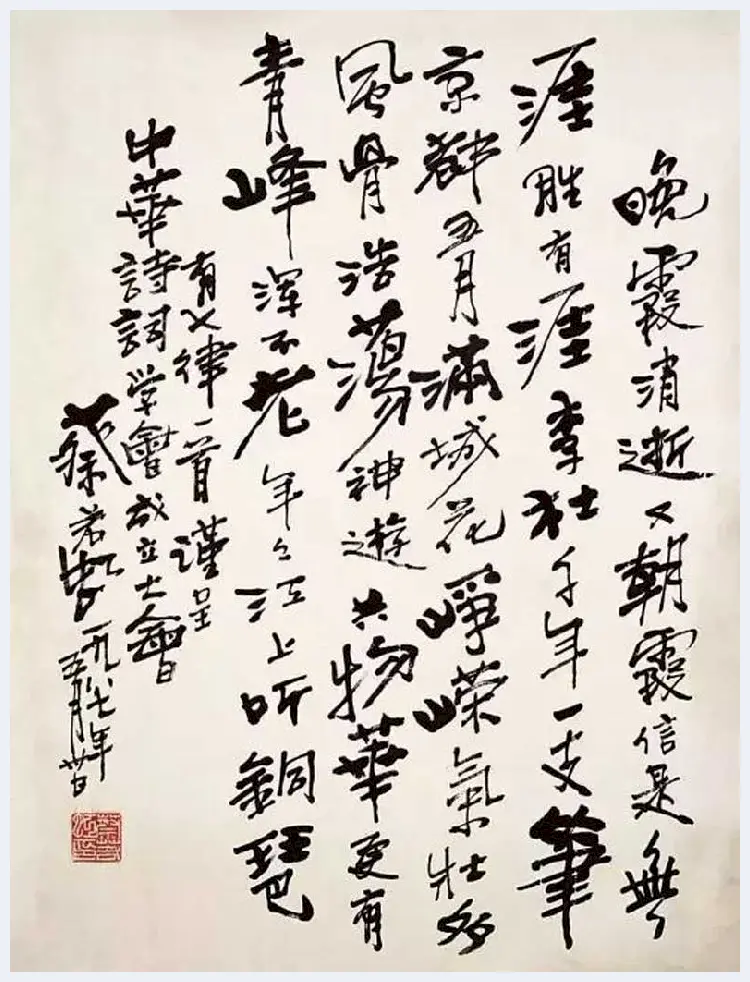 晚霞消逝又朝霞信是無
涯胜有涯李杜千年一支筆
京都五月滿城花崢嶸氣壯多
風骨浩蕩神遊共物華更有
青峰渾不老年々江上听銅琶
有七律一首謹呈
中華詩詞学會成立大會
蔡若虹一九八七年
五月廿日